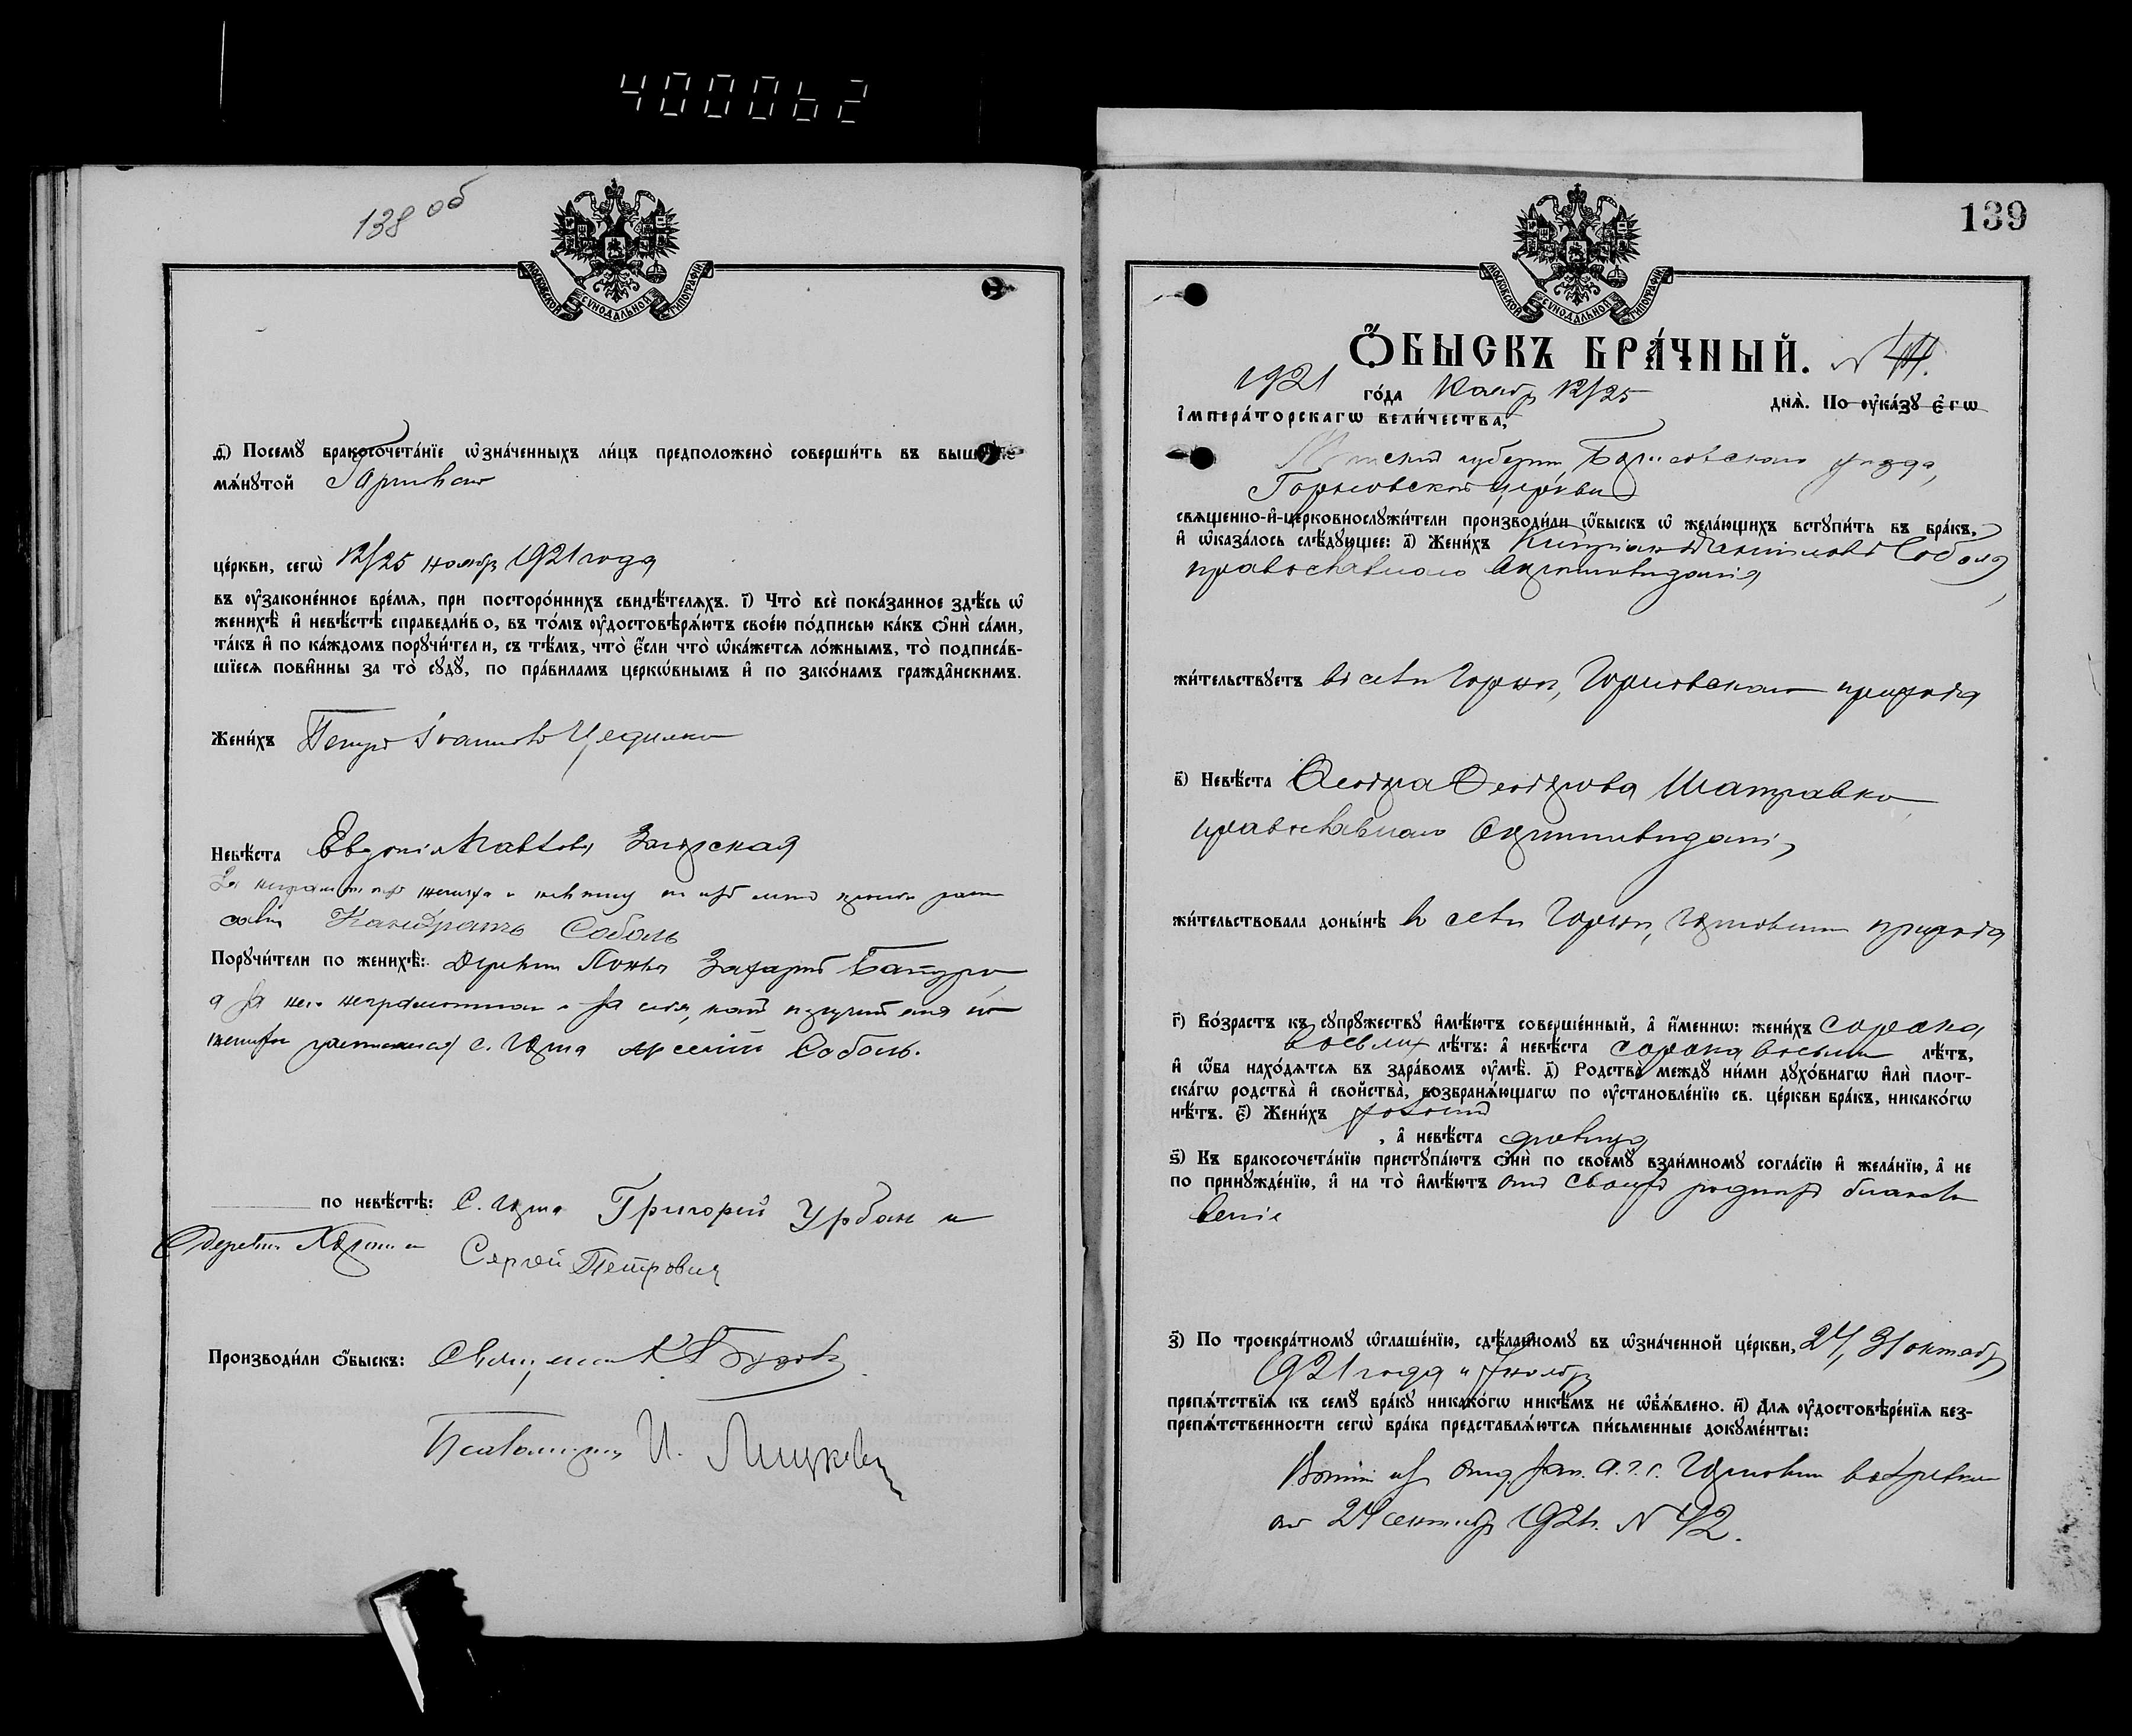 400062
138 об
МОСКОВСКОЙ СѴНОДАЛЬНОЙ ТИПОГРАФІИ
д҃) Посемꙋ бракосочета́нїе ѡ҆зна́ченныхъ ли́цъ предположено̀ соверши́ть въ выше
мѧ́нꙋтой
це́ркви, сегѡ̀ 12/25 ноября 1921 года
въ ᲂу҆законе́нное вре́мѧ, при посторо́ннихъ свидѣ́телѧхъ. і҃) Что̀ всѐ пока́занное здѣ́сь ѡ҆
женихѣ̀ и҆ невѣ́стѣ справедли́во, въ то́мъ ᲂу҆достовѣрѧ́ютъ свое́ю по́дписью ка́къ ѻ҆нѝ са́ми,
та́къ и҆ по ка́ждомъ порꙋчи́тели, съ тѣ́мъ, что̀ є҆́сли что̀ ѡ҆ка́жетсѧ ло́жнымъ, то̀ подписа́в-
шїесѧ пови́нны за то̀ сꙋдꙋ̀, по пра́виламъ церко́внымъ и҆ по зако́намъ гражда́нскимъ.
Жени́хъ Петръ Іоанновъ Цедилко
Невѣ́ста Евгенія Загорская
жениха и
Кандратъ Соболь
Порꙋчи́тели по женихѣ̀: Деревни Захарій Батура
а за него неграмотнаго и за себя,
с. Арсеній Соболь.
по невѣ́стѣ: С. Григорій Урбан и
деревни Сергей Петрович
Производи́ли ѻ҆́быскъ: Священник
Псаломщик И.
139
МОСКОВСКОЙ СѴНОДАЛЬНОЙ ТИПОГРАФІИ
Ѻ҆́БЫСКЪ БРА́ЧНЫЙ. N
1921 го́да Ноября 12/25 днѧ̀. По ᲂу҆ка́зꙋ є҆гѡ̀
і҆мпера́торскагѡ вели́чества,
Минской губерніи, Борисовскаго уезда,
Горковской церкви
свѧще́нно-и҆-церковнослꙋжи́тели производи́ли ѻ҆́быскъ ѡ҆ жела́ющихъ встꙋпи́ть въ бра́къ,
и҆ ѡ҆каза́лось слѣ́дꙋющее: а҃) Жени́хъ Кипріан Даниловъ Соболь,
православнаго вероисповеданія
жи́тельствꙋетъ в селе Горки, Горковскаго прихода
в҃) Невѣ́ста Ѳеодора Ѳеодорова Шатравко
православнаго вероисповеданія,
жи́тельствовала доны́нѣ в селе Горки, прихода
г҃) Во́зрастъ къ сꙋпрꙋ́жествꙋ и҆мѣ́ютъ соверше́нный, а҆ и҆́меннѡ: жени́хъ сорока
восьми лѣ́тъ: а҆ невѣ́ста сорока восьми лѣ́тъ,
и҆ ѻ҆́ба нахо́дѧтсѧ въ здра́вомъ ᲂу҆мѣ̀. д҃) Родства̀ междꙋ̀ ни́ми дꙋхо́внагѡ и҆лѝ плот-
ска́гѡ родства̀ и҆ сво́йства, возбранѧ́ющагѡ по ᲂу҆становле́нїю св. це́ркви бра́къ, никако́гѡ
нѣ́тъ. є҃) Жени́хъ холостъ
, а҆ невѣ́ста девица
ѕ҃) Къ бракосочета́нїю пристꙋпа́ютъ ѻ҆нѝ по своемꙋ̀ взаи́мномꙋ согла́сїю и҆ жела́нїю, а҆ не
по принꙋжде́нїю, и҆ на то̀ и҆мѣ́ютъ от своихъ родныхъ благосло
веніе
з҃) По троекра́тномꙋ ѡ҆глаше́нїю, сдѣ́ланномꙋ въ ѡ҆зна́ченной це́ркви, 24, 31 октября
1921 года и 7 ноября
препѧ́тствїѧ къ семꙋ̀ бра́кꙋ никако́гѡ никѣ́мъ не ѡ҆б̾ѧ́влено. и҃) Длѧ ᲂу҆достовѣре́нїѧ без-
препѧ́тственности сегѡ̀ бра́ка представлѧ́ютсѧ пи́сьменные докꙋме́нты:
Копіи из
от 24 сентября 1921 г. N 42.